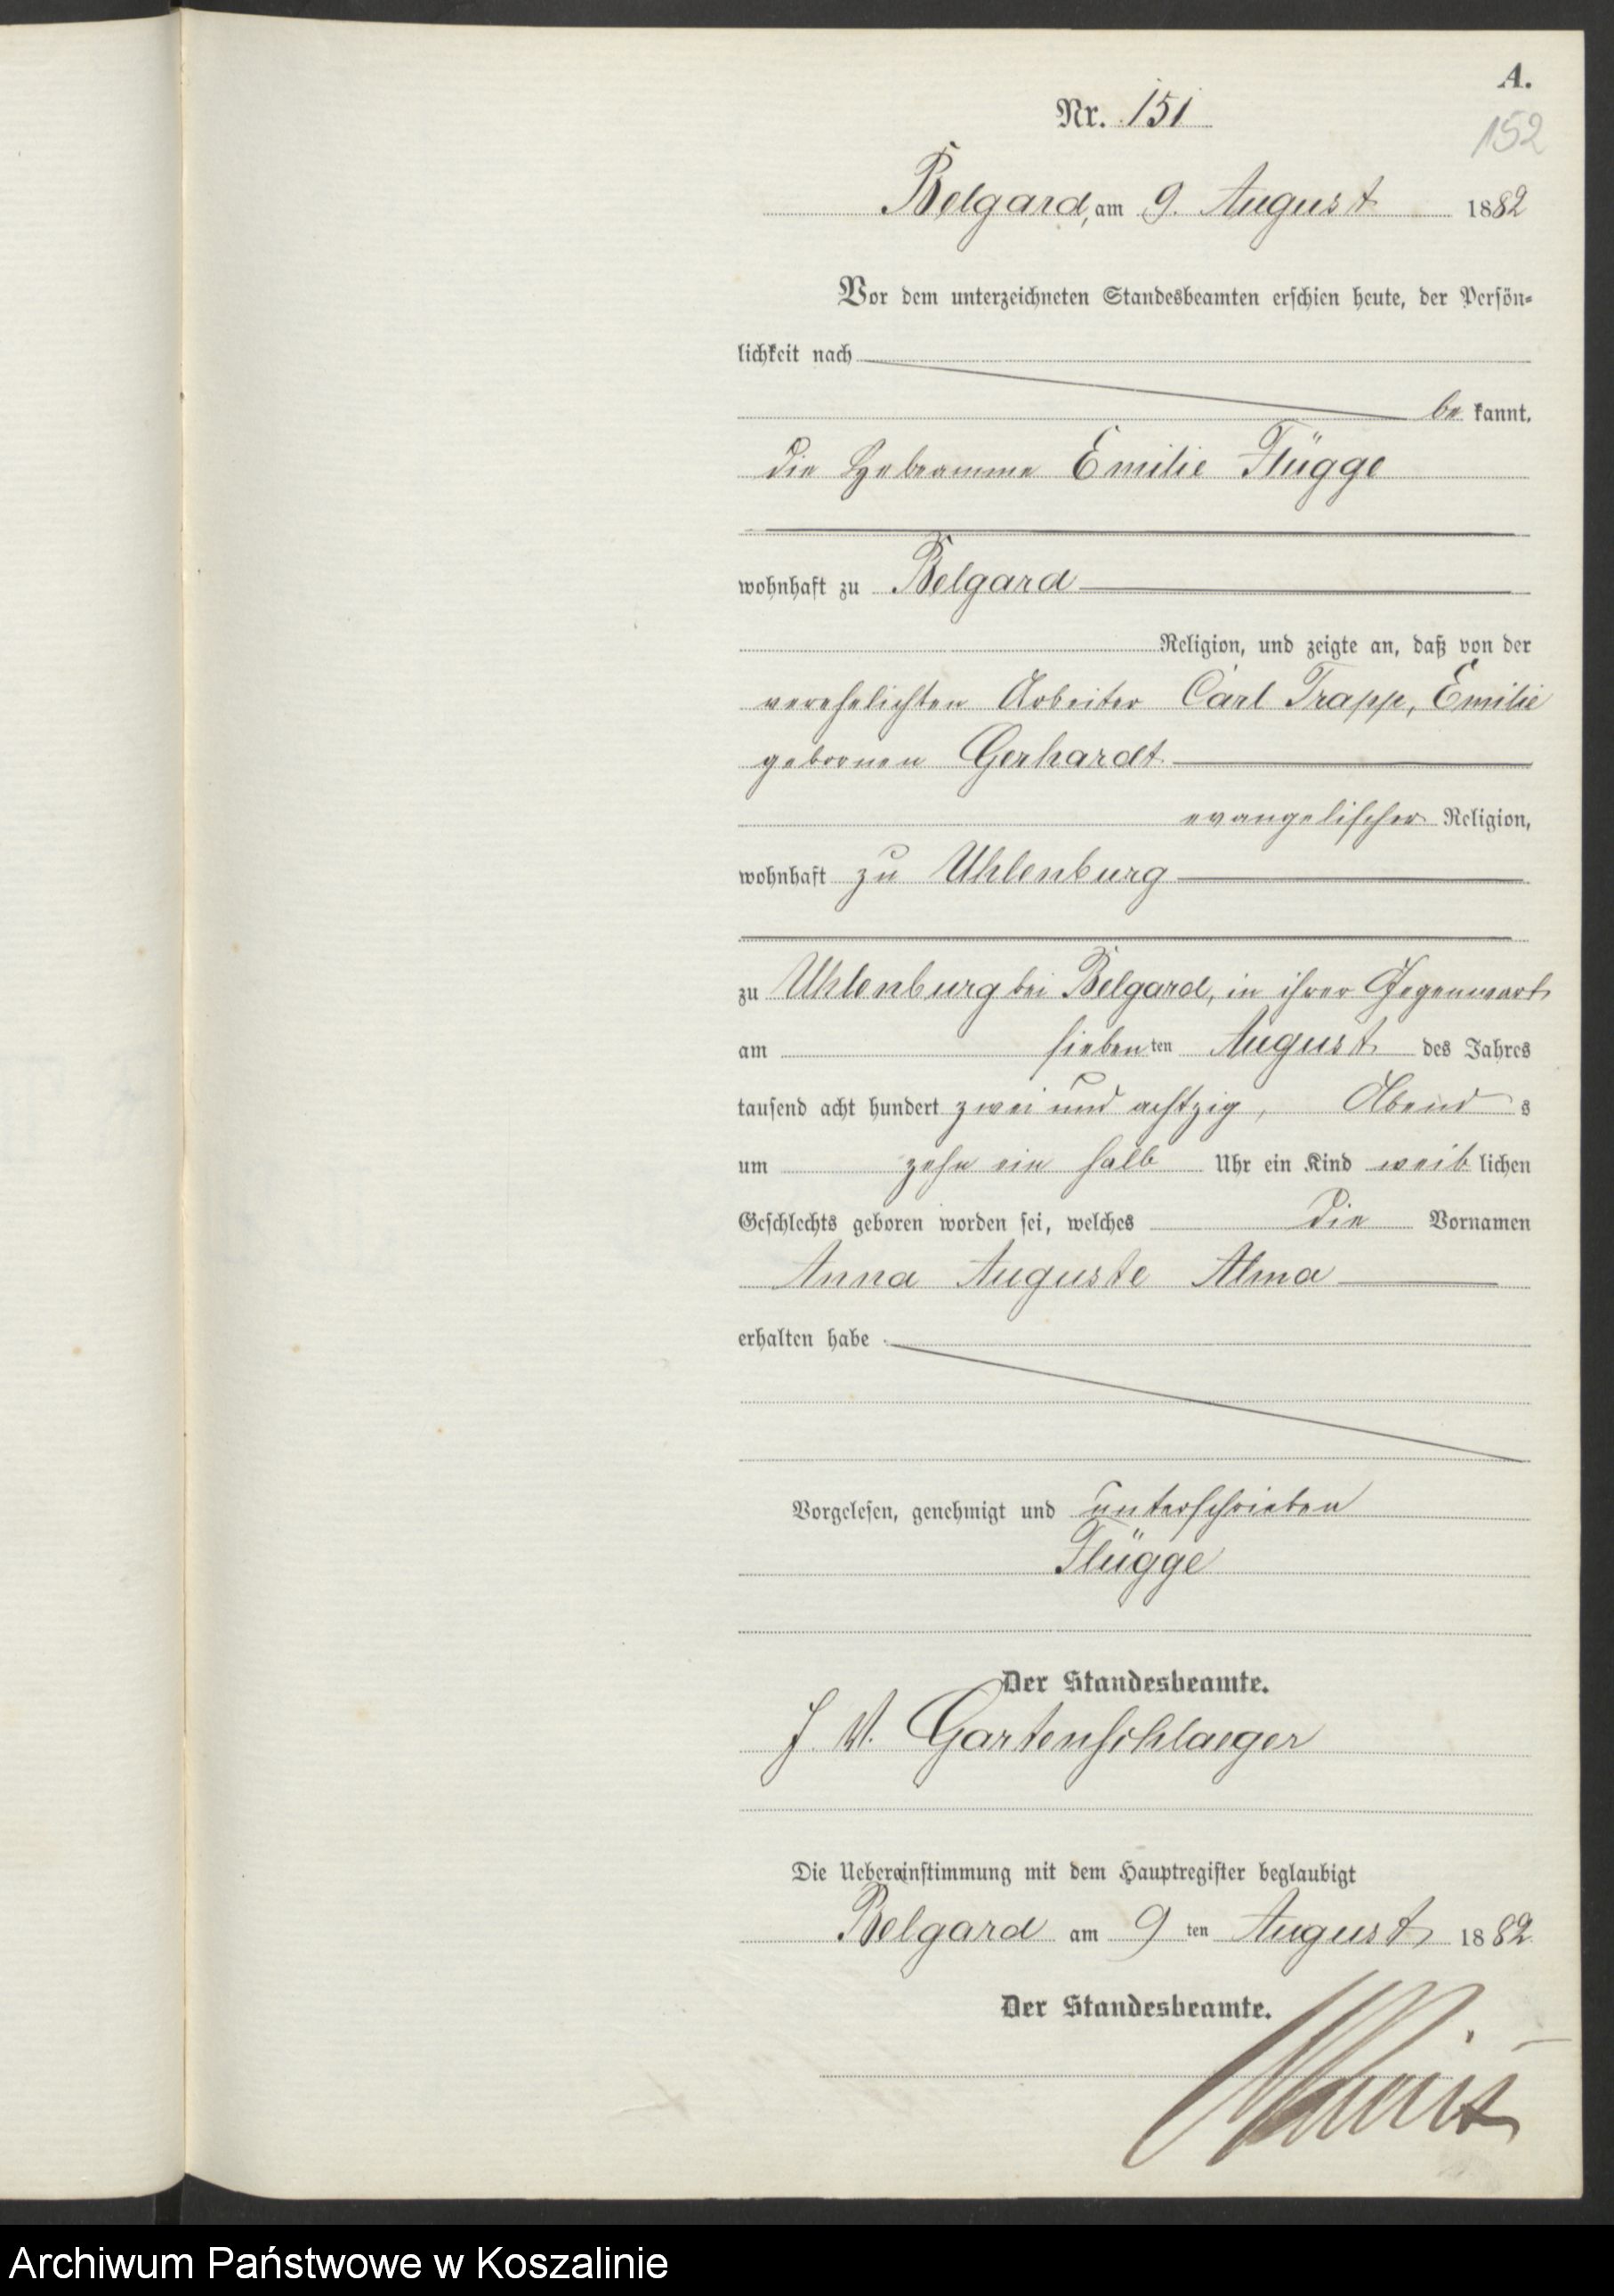 A.
Nr. 151
152
Belgard, am 9. August 1882
Vor dem unterzeichneten Standesbeamten erschien heute, der Persön-
lichkeit nach
be kannt,
die Hebeamme Emilie Flügge
wohnhaft zu Belgard
Religion, und zeigte an, daß von der
verehelichten Arbeiter Carl Trapp, Emilie
gebornen Gerhardt
evangelischer Religion,
wohnhaft zu Uhlenburg
zu Uhlenburg bei Belgard, in ihrer Gegenwart
am siebenten August des Jahres
tausend acht hundert zwei und achtzig, Abends
um zehn ein halb Uhr ein Kind weiblichen
Geschlechts geboren worden sei, welches die Vornamen
Anna Auguste Alma
erhalten habe
Vorgelesen, genehmigt und unterschrieben
Flügge
Der Standesbeamte.
J. V. Gartenschlaeger
Die Uebereinstimmung mit dem Hauptregister beglaubigt
Belgard am 9ten August 1882
Der Standesbeamte.
Archiwum Państwowe w Koszalinie